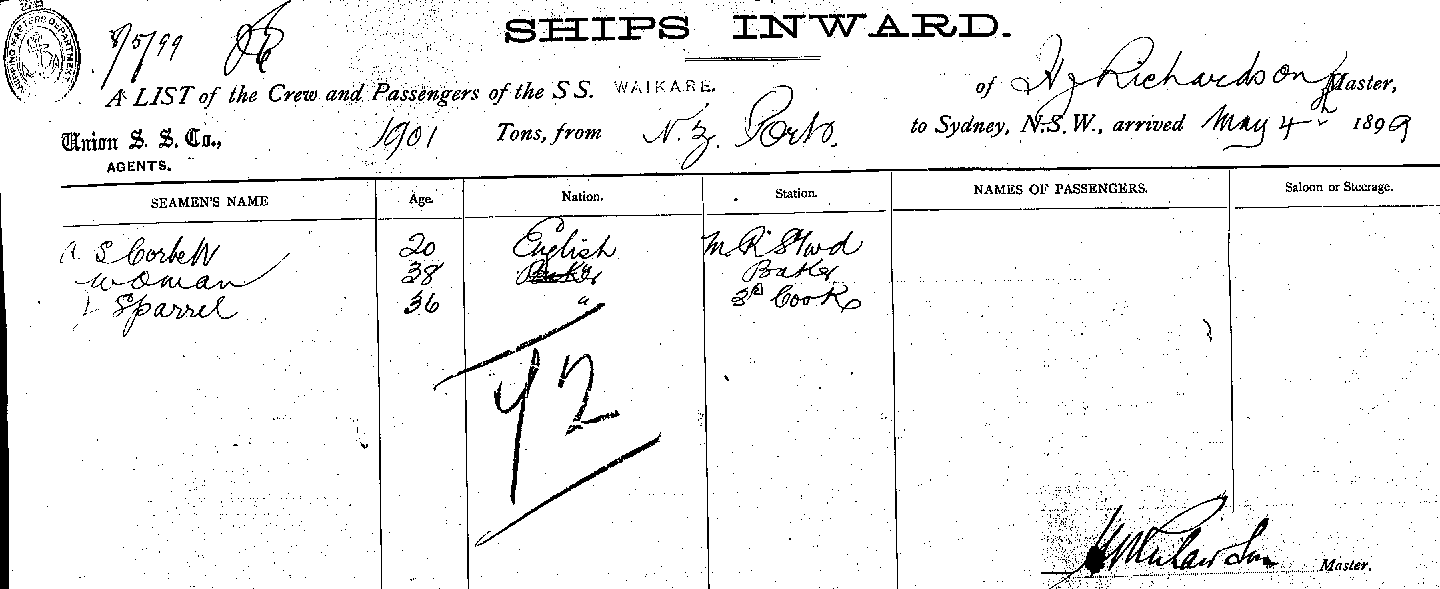 SHIPPING MASTERS DEPARTMENT
SHIPS INWARD.
8/5/99
A LIST of the Crew and Passengers of the SS. WAIKARE. of Richardson Master,
Union S. S. Co., 1901 Tons, from N. Z. Ports. to Sydney, N.S.W., arrived May 4 1899
AGENTS.
SEAMEN'S NAME Age. Nation. Station. NAMES OF PASSENGERS. Saloon or Steerage.
S Corbett 20 English M. R. Stwd
Woman 38 Baker
Sparrel 36 " 3rd Cook
42
Master.